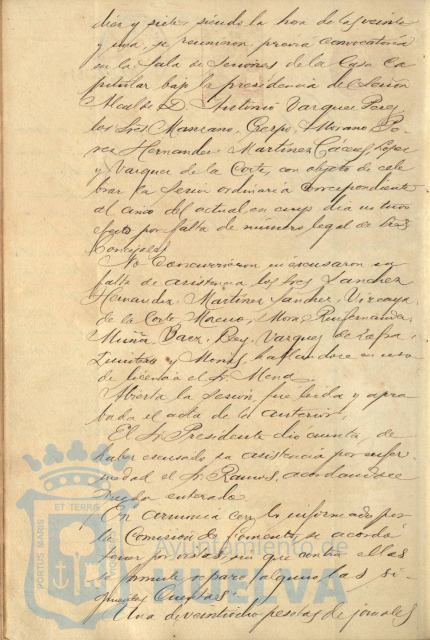 diez y siete siendo la hora de las veinte
y una, se reunieron, previa convocatoria
en la Sala de Sesiones de la Casa Ca
pitular bajo la presidencia de Señor
Alcalde D. Antonio Vazquez Perez
los Sres Manzano, Crespo, Morano, Po-
Hernandez Martinez Cáceres Lopez
y Vazquez de la Corte, con objeto de cele
brar la Sesion ordinaria correspondiente
al cinco del actual en cuyo dia no tuvo
efecto por falta de número legal de Sres
Concejales.
No concurrieron ni escusaron su
falta de asistencia los Sres Sanchez
Hernandez, Martinez Sanchez, Vizcaya,
de la Corte Moreno, Mora,
Baez, Rey, Vazquez de Zafra,
Quintero y hallandose en uso
de licencia el Sr. Mena.
Abierta la Sesión, fue leida y apro
bada el acta de la anterior.
El Sr. Presidente dió cuenta, de
haber escusado su asistencia por enfer
medad el Sr. Ramos, acordandose
quedar enterado.
En armonia con lo informado por
la Comision de Fomento, se acordó
sin que contra ellas
se formule reparo alguno, las si-
guientes Cuentas:
Una de veintiocho pesetas de jornales
PORTUS MARIS ET TERRE
Ayuntamiento de
HUELVA